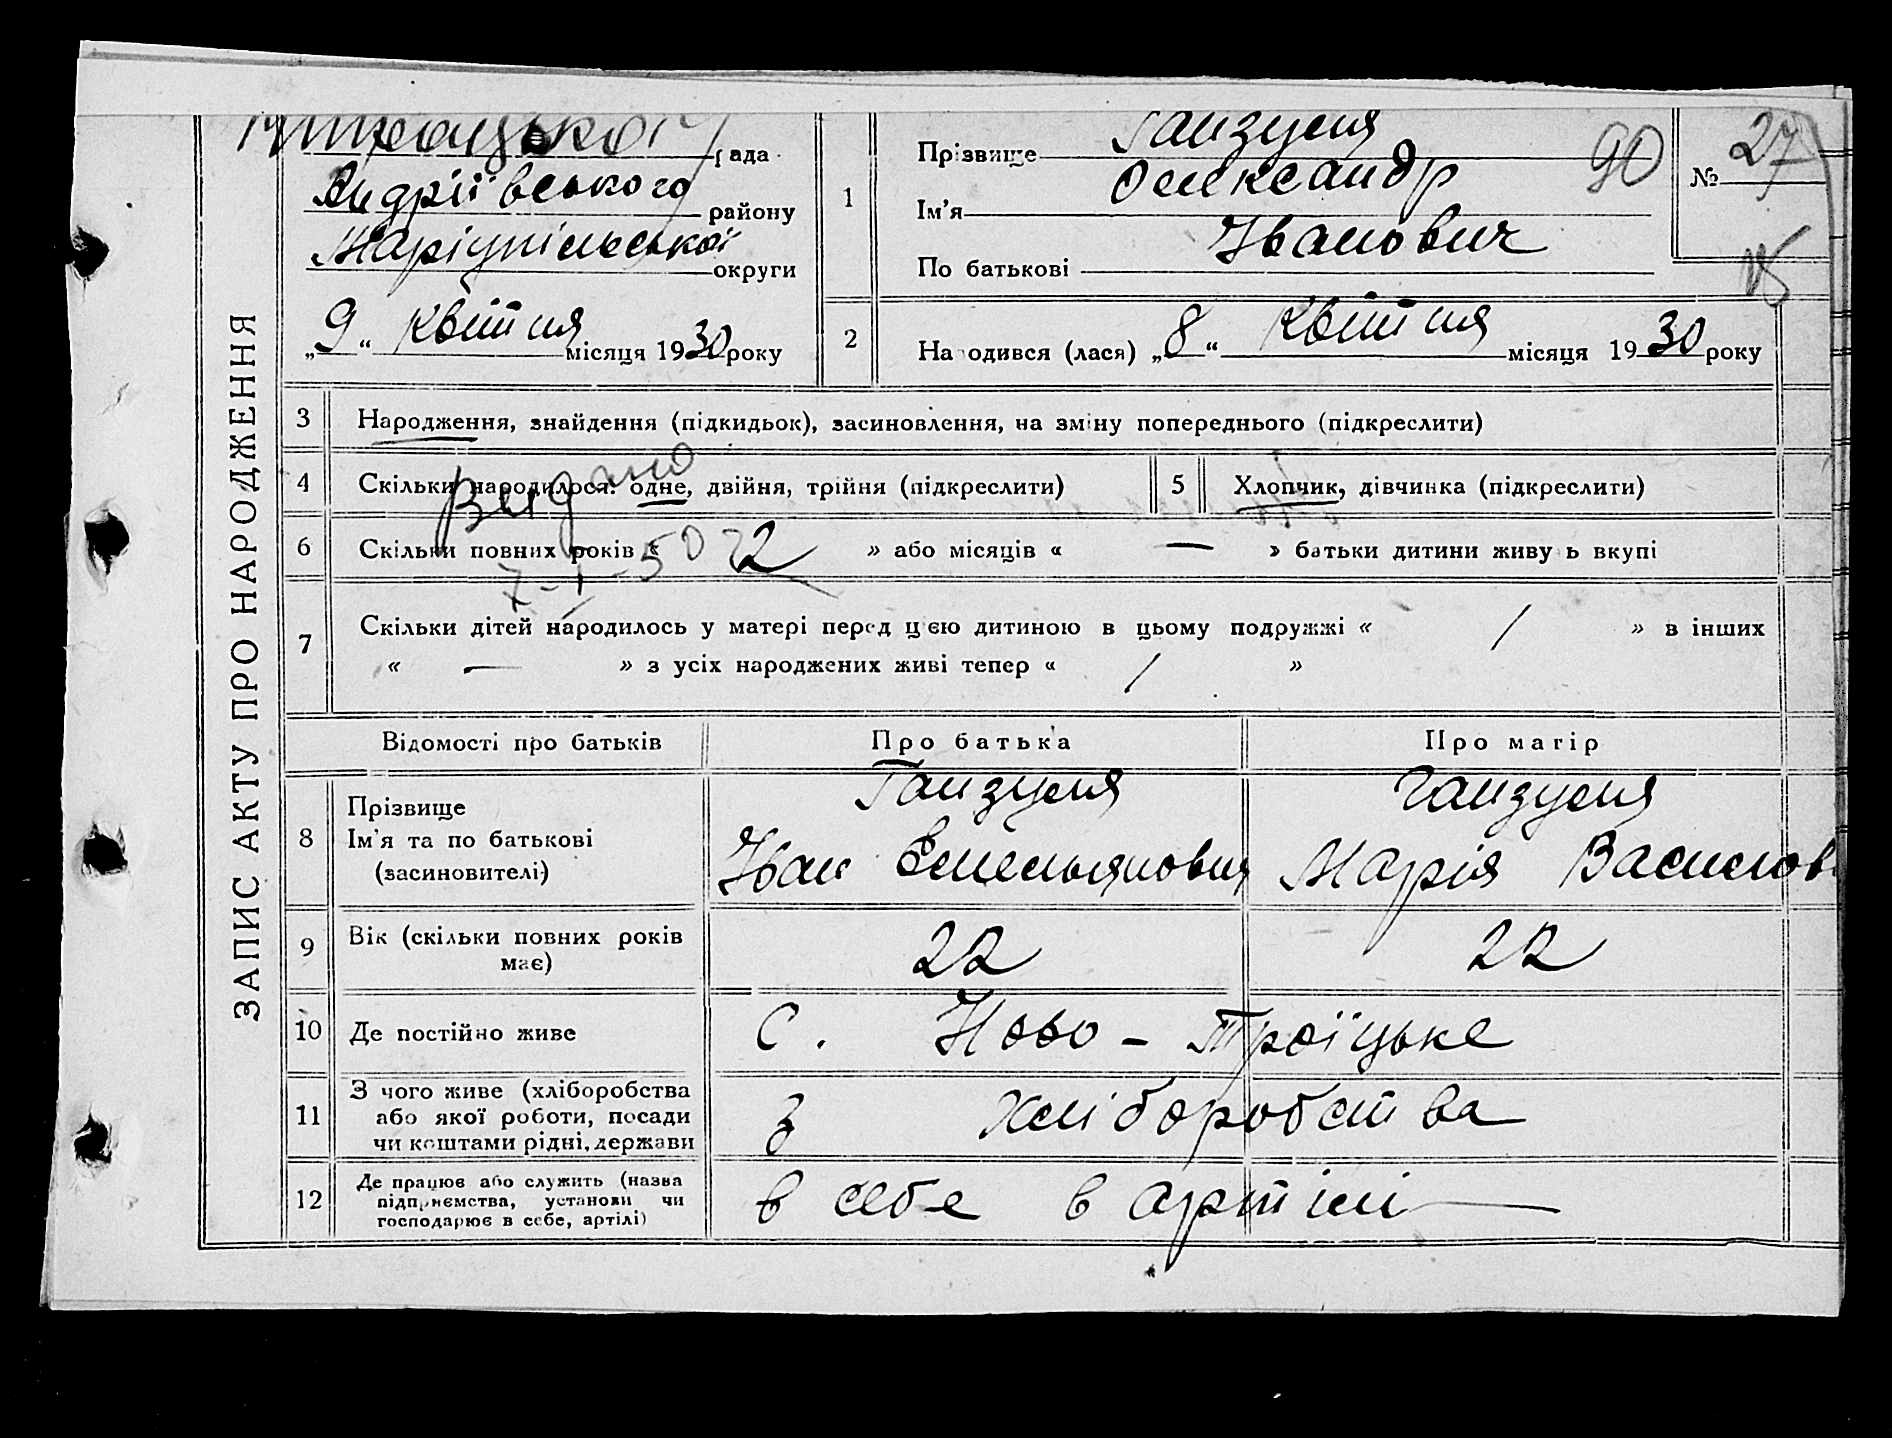 ЗАПИС АКТУ ПРО НАРОДЖЕННЯ
рада
Андріївського району
Маріупільської округи
„9“ квітня місяця 1930 року
1
Прізвище Ганзуля
Ім'я Олександр
По батькові Іванович
90
№ 27
2
Народився (лася) „8“ квітня місяця 1930 року
3 Народження, знайдення (підкидьок), засиновлення, на зміну попереднього (підкреслити)
4 Скільки народилося: одне, двійня, трійня (підкреслити)
5 Хлопчик, дівчинка (підкреслити)
Видано
6 Скільки повних років « 2 » або місяців « — » батьки дитини живуть вкупі
7 Скільки дітей народилось у матері перед цією дитиною в цьому подружжі « / » в інших
« — » з усіх народжених живі тепер « / »
Відомості про батьків Про батька Про матір
8 Прізвище
Ім'я та по батькові
(засиновителі)
Ганзуля
Іван Емельянович
Ганзуля
Марія Василов
9 Вік (скільки повних років
має)
22 22
10 Де постійно живе с. Ново-Троїцьке
11 З чого живе (хліборобства
або якої роботи, посади
чи коштами рідні, держави
з хліборобства
12 Де працює або служить (назва
підприємства, установи чи
господарює в себе, артілі)
в себе в артілі —